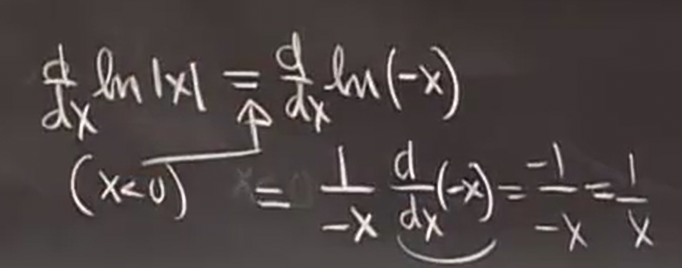 d/dx ln |x| = d/dx ln(-x)
(x<0) = 1/-x d/dx (-x) = -1/-x = 1/x